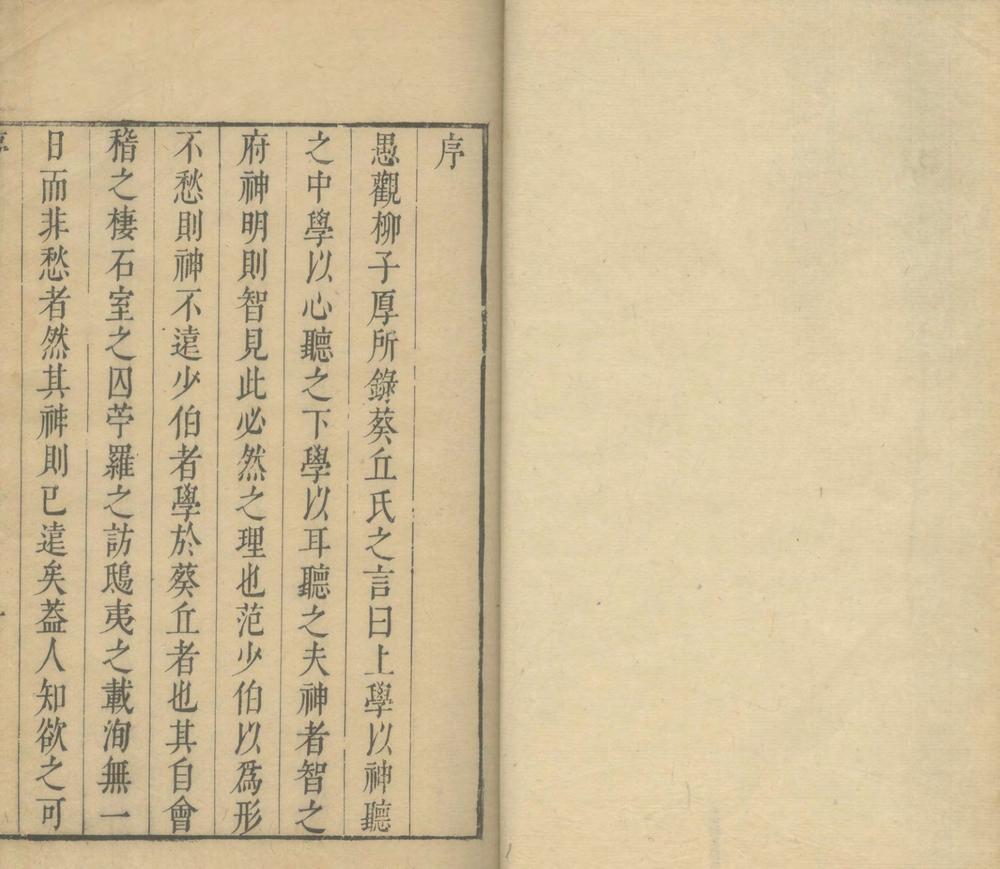 序
愚觀柳子厚所錄葵丘氏之言曰上學以神聽
之中學以心聽之下學以耳聽之夫神者智之
府神明則智見此必然之理也范少伯以為形
不愁則神不遠少伯者學於葵丘者也其自會
稽之棲石室之囚苧羅之訪鴟夷之載洵無一
日而非愁者然其神則已遠矣葢人知欲之可